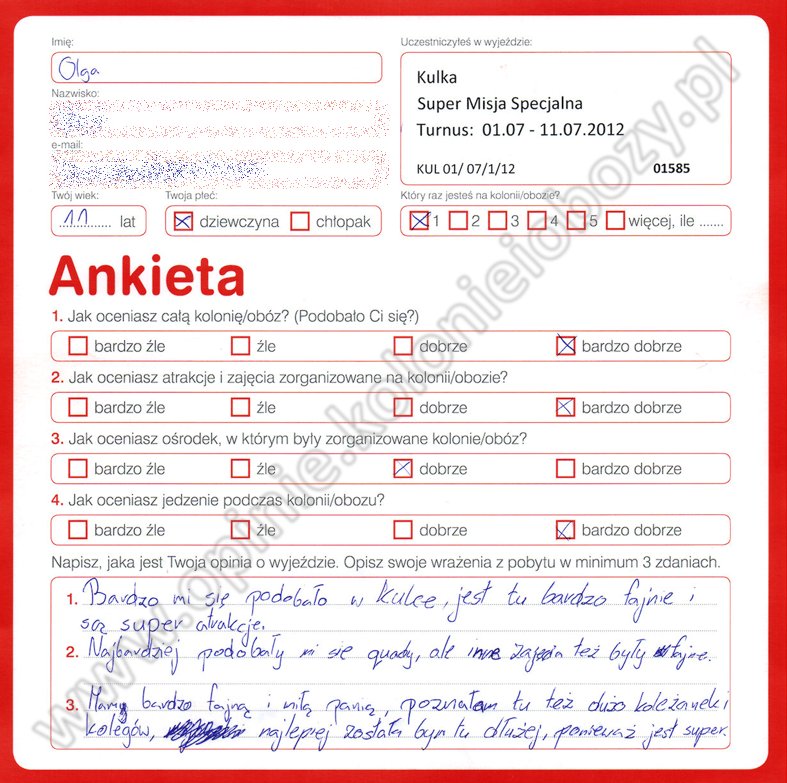 Imię:
Olga
Uczestniczyłeś w wyjeździe:
Kulka
Super Misja Specjalna
Turnus: 01.07 - 11.07.2012
KUL 01/ 07/1/12 01585
Nazwisko:
e-mail:
Twój wiek: Twoja płeć: Który raz jesteś na kolonii/obozie?
11 lat dziewczyna chłopak 1 2 3 4 5 więcej, ile .......
Ankieta
1. Jak oceniasz całą kolonię/obóz? (Podobało Ci się?)
bardzo źle źle dobrze bardzo dobrze
2. Jak oceniasz atrakcje i zajęcia zorganizowane na kolonii/obozie?
bardzo źle źle dobrze bardzo dobrze
3. Jak oceniasz ośrodek, w którym były zorganizowane kolonie/obóz?
bardzo źle źle dobrze bardzo dobrze
4. Jak oceniasz jedzenie podczas kolonii/obozu?
bardzo źle źle dobrze bardzo dobrze
Napisz, jaka jest Twoja opinia o wyjeździe. Opisz swoje wrażenia z pobytu w minimum 3 zdaniach.
1. Bardzo mi się podobało w Kulce, jest tu bardzo fajnie i
są super atrakcje.
2. Najbardziej podobały mi się quady, ale inne zajęcia też były fajne.
3. Mamy bardzo fajną i miłą panią, poznałam tu też dużo koleżanek i
kolegów, najlepiej została bym tu dłużej, ponieważ jest super.
www.opinie.kolonieiobozy.pl